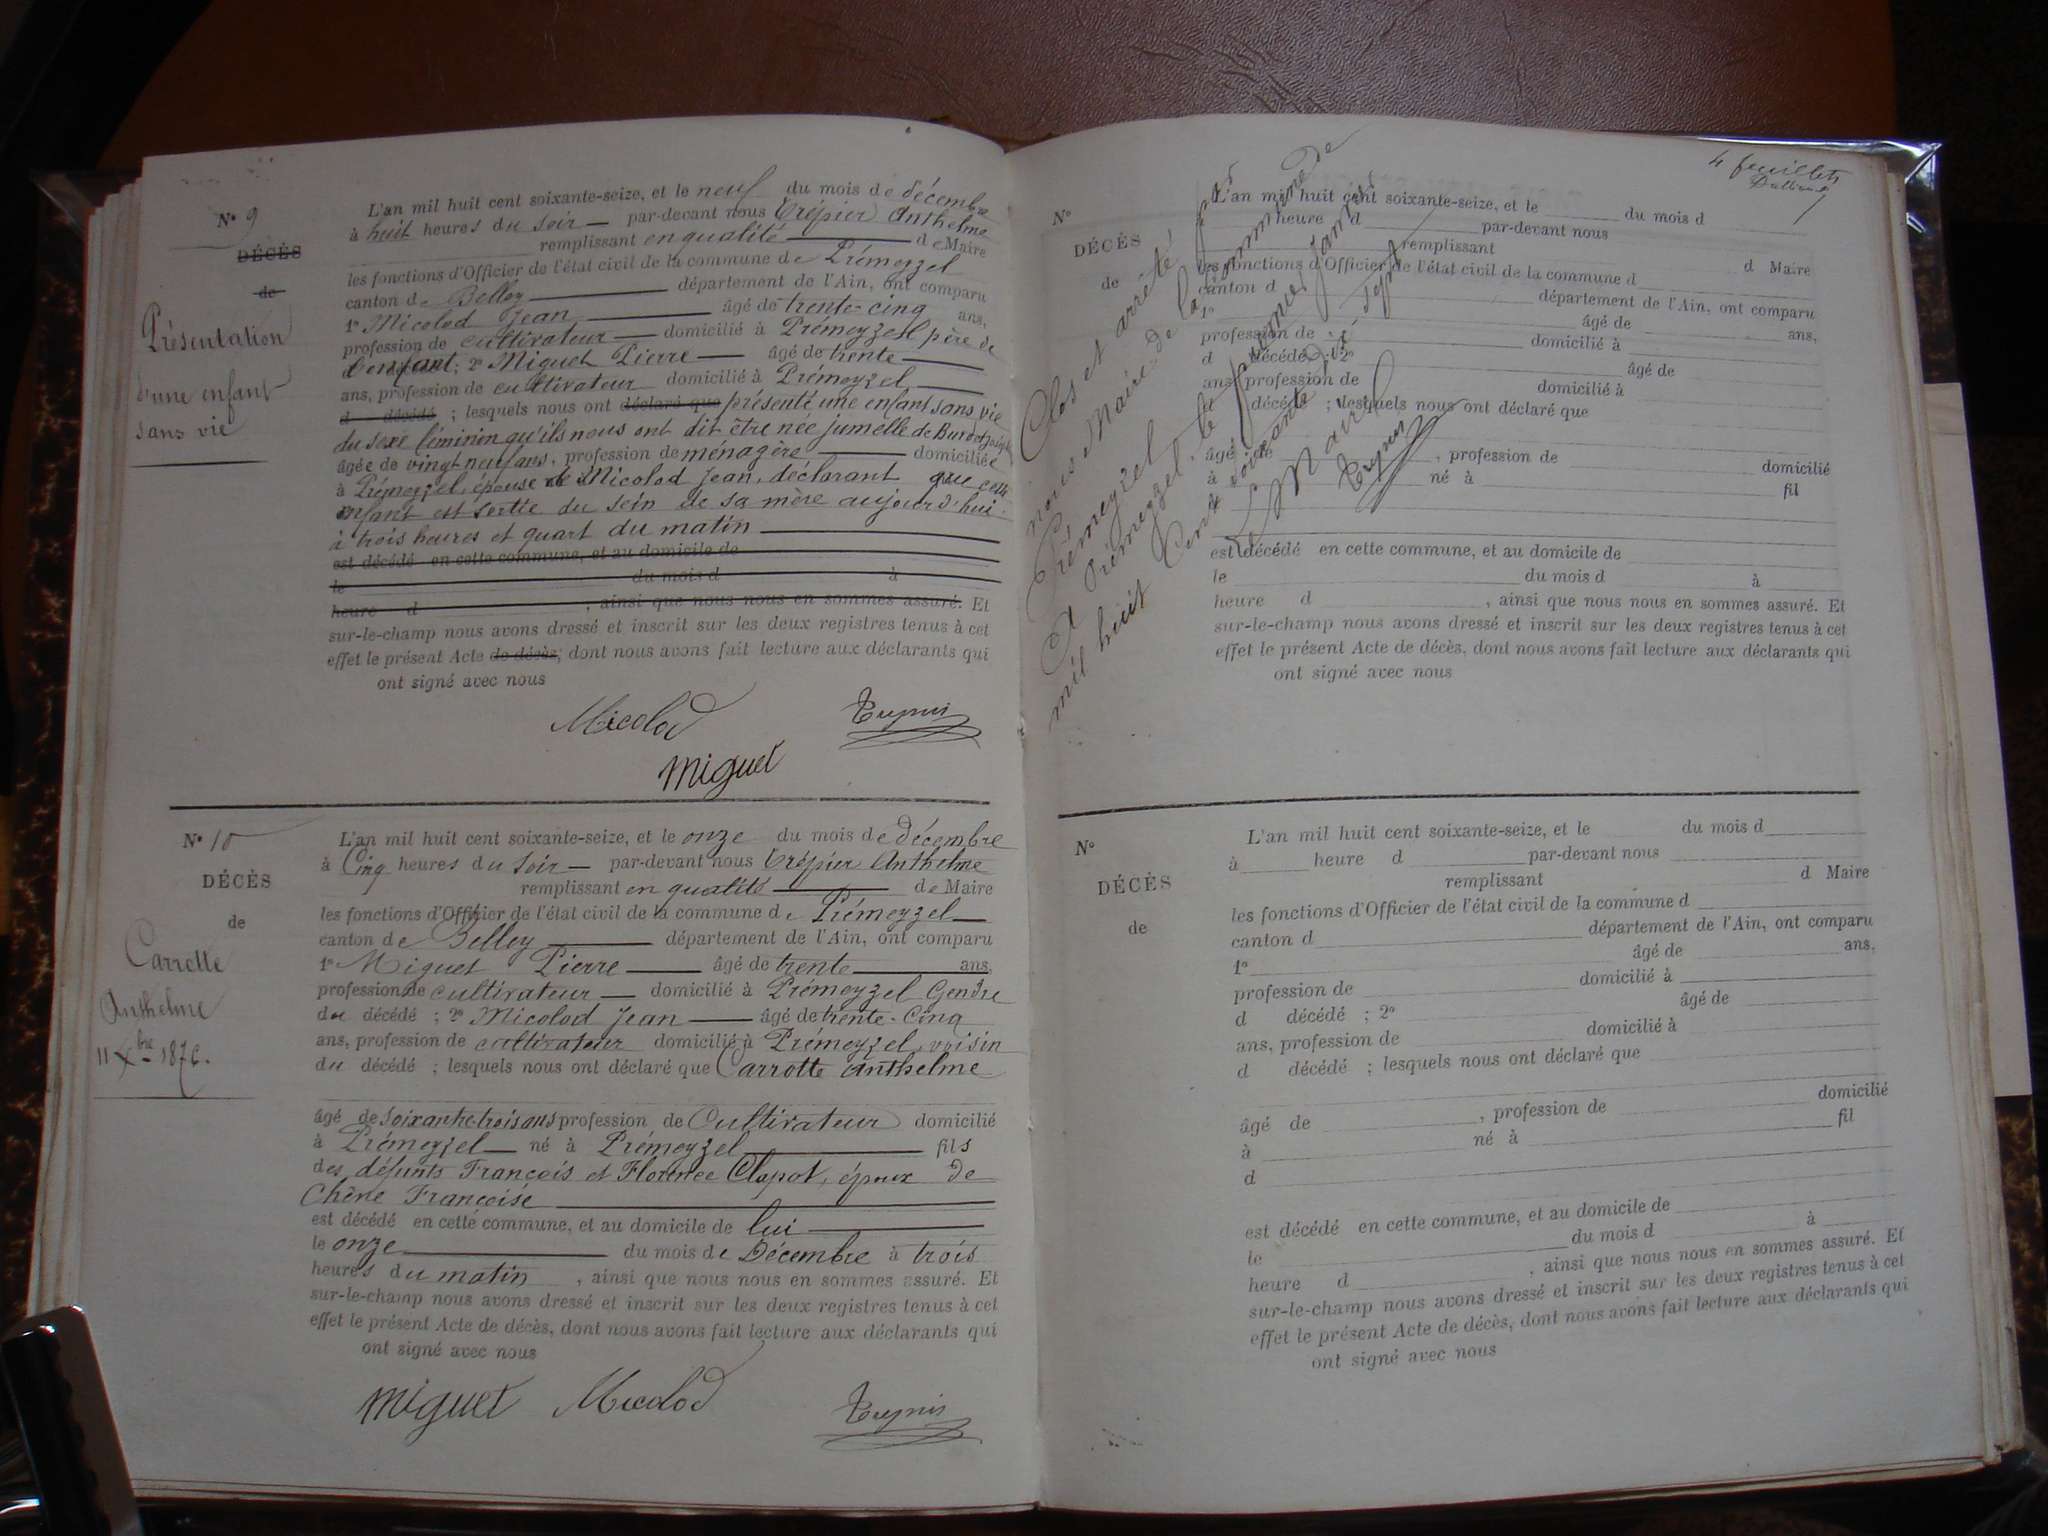 N° 9
DÉCÈS
de
Présentation
d'une enfant
sans vie
L'an mil huit cent soixante-seize, et le neuf du mois de décembre
à huit heures du soir par-devant nous Crépier Anthelme
remplissant en qualité de Maire
les fonctions d'Officier de l'état civil de la commune de Prémeyzel
canton de Belley département de l'Ain, ont comparu
1° Micolod Jean âgé de trente-cinq ans,
profession de cultivateur domicilié à Prémeyzel père de
l'enfant; 2° Miguet Pierre âgé de trente
ans, profession de cultivateur domicilié à Prémeyzel
d décédé ; lesquels nous ont déclaré que présenté une enfant sans vie
du sexe féminin qu'ils nous ont dit être née jumelle de
âgée de vingt neuf ans, profession de ménagère domiciliée
à Prémeyzel, épouse de Micolod Jean, déclarant que cette
enfant est sortie du sein de sa mère aujourd'hui
à trois heures et quart du matin
est décédé en cette commune, et au domicile de
le du mois d à
heure d , ainsi que nous nous en sommes assuré. Et
sur-le-champ nous avons dressé et inscrit sur les deux registres tenus à cet
effet le présent Acte de décès, dont nous avons fait lecture aux déclarants qui
ont signé avec nous
Micolod
Miguet
N° 10
DÉCÈS
de
Carrotte
Anthelme
11 Xbre 1876.
L'an mil huit cent soixante-seize, et le onze du mois de décembre
à Cinq heures du soir par-devant nous Crépier Anthelme
remplissant en qualité de Maire
les fonctions d'Officier de l'état civil de la commune de Prémeyzel
canton de Belley département de l'Ain, ont comparu
1° Miguet Pierre âgé de trente ans,
profession de cultivateur domicilié à Prémeyzel Gendre
du décédé ; 2° Micolod Jean âgé de trente-Cinq
ans, profession de cultivateur domicilié à Prémeyzel, voisin
du décédé ; lesquels nous ont déclaré que Carrotte Anthelme
âgé de soixante trois ans profession de Cultivateur domicilié
à Prémeyzel né à Prémeyzel fils
des défunts François et Florence Clapot, époux de
Chêne Françoise
est décédé en cette commune, et au domicile de lui
le onze du mois de Décembre à trois
heures du matin , ainsi que nous nous en sommes assuré. Et
sur-le-champ nous avons dressé et inscrit sur les deux registres tenus à cet
effet le présent Acte de décès, dont nous avons fait lecture aux déclarants qui
ont signé avec nous
Miguet Micolod
4 feuillets
N°
DÉCÈS
de
L'an mil huit cent soixante-seize, et le du mois d
heure d par-devant nous
remplissant d Maire
les fonctions d'Officier de l'état civil de la commune d
canton d département de l'Ain, ont comparu
1° âgé de ans,
profession de domicilié à
d décédé ; 2° âgé de
ans, profession de domicilié à
d décédé ; lesquels nous ont déclaré que
âgé de , profession de domicilié
à né à fil
d
est décédé en cette commune, et au domicile de
le du mois d à
heure d , ainsi que nous nous en sommes assuré. Et
sur-le-champ nous avons dressé et inscrit sur les deux registres tenus à cet
effet le présent Acte de décès, dont nous avons fait lecture aux déclarants qui
ont signé avec nous
Clos et arrêté par
nous Maire de la commune de
Prémeyzel
A Prémeyzel, le premier Janvier
mil huit Cent soixante dix sept
Le Maire
N°
DÉCÈS
de
L'an mil huit cent soixante-seize, et le du mois d
à heure d par-devant nous
remplissant d Maire
les fonctions d'Officier de l'état civil de la commune d
canton d département de l'Ain, ont comparu
1° âgé de ans,
profession de domicilié à
d décédé ; 2° âgé de
ans, profession de domicilié à
d décédé ; lesquels nous ont déclaré que
âgé de , profession de domicilié
à né à fil
d
est décédé en cette commune, et au domicile de
le du mois d à
heure d , ainsi que nous nous en sommes assuré. Et
sur-le-champ nous avons dressé et inscrit sur les deux registres tenus à cet
effet le présent Acte de décès, dont nous avons fait lecture aux déclarants qui
ont signé avec nous